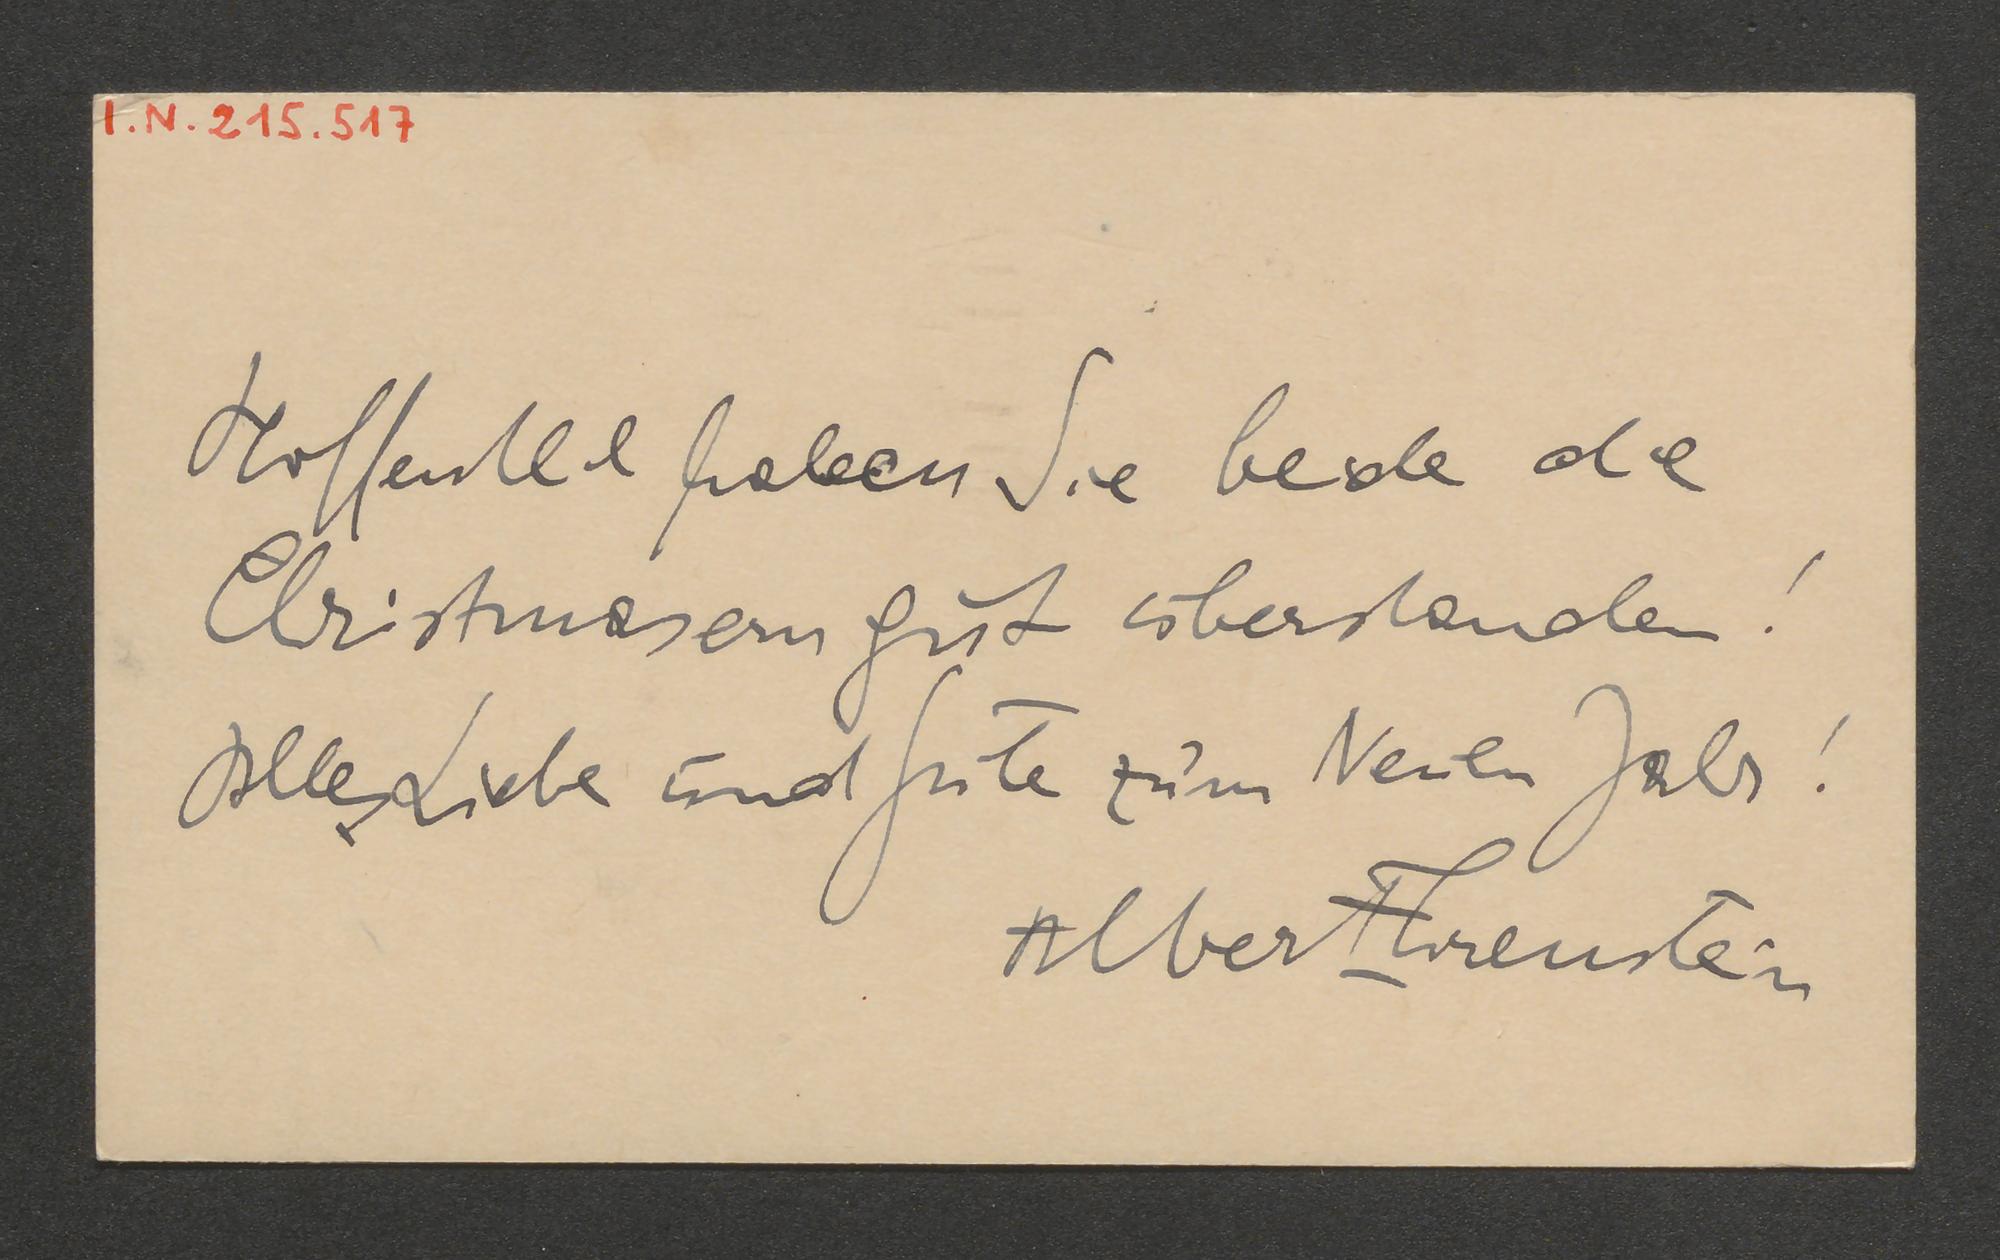 I.N. 215.517
Hoffentlich haben Sie beide die
Christmasern gut überstanden!
Alles Liebe und Gute zum Neuen Jahr!
Albert Ehrenstein